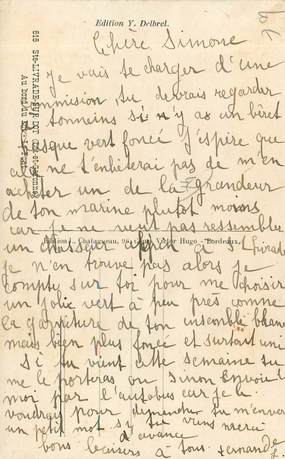 Edition Y. Delbrel.
616 Ste-LIVRADE-SUR-LOT
Chère Simone
je vais te charger d'une
commision tu devrais regarder
tonneins si n'y as un béret
basque vert foncé j'éspire que
cela ne t'enbêterai pas de m'en
acheter un de la grandeur
de ton marine plutot moins
car je ne veut pas ressembler
un chasseur Alpin St Livrade
Edition L. Chatagneau, Victor Hugo - Bordeaux.
je n'en trouve pas alors je
compte sur toi pour me choisir
un jolie vert à peu près comme
la garniture de ton insemble blanc
mais bien plus foncé et surtout uni
Si tu vient cette semaine tu
me le porteras ou sinon Envoie
moi par l'autobus car je le
voudrais pour dimanche tu m'enverras
un petit mot si tu viens merci
d'avance
bons baisers à tous Fernande